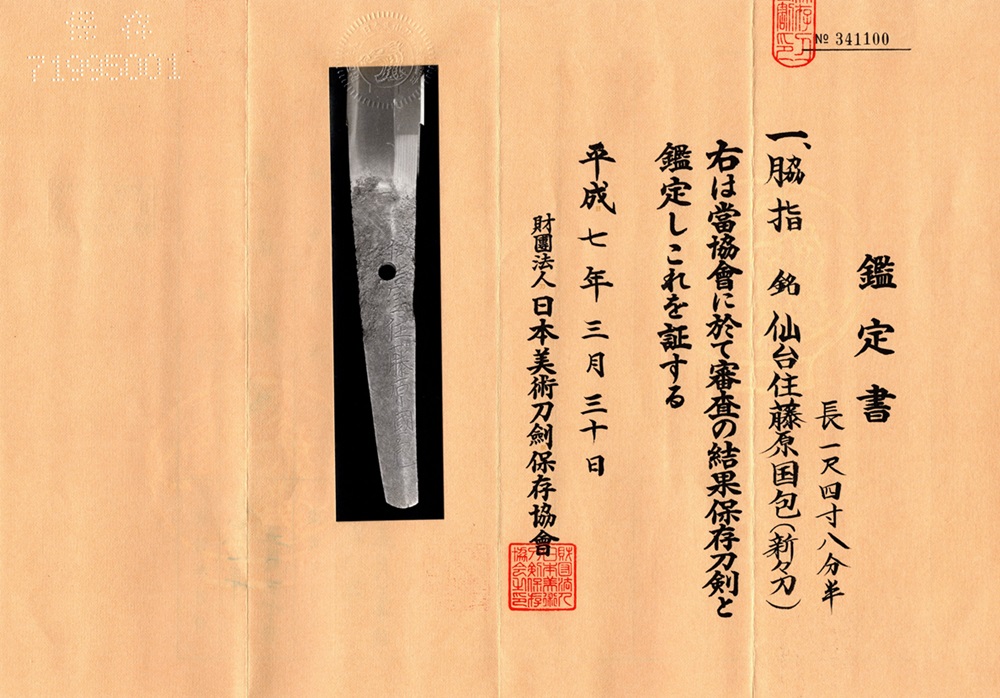 № 341100
鑑定書
長一尺四寸八分半
一、脇指 銘 仙台住藤原国包(新々刀)
右は當協會に於て審査の結果保存刀剣と
鑑定しこれを証する
平成七年三月三十日
財團法人日本美術刀劍保存協會
保存
71995001